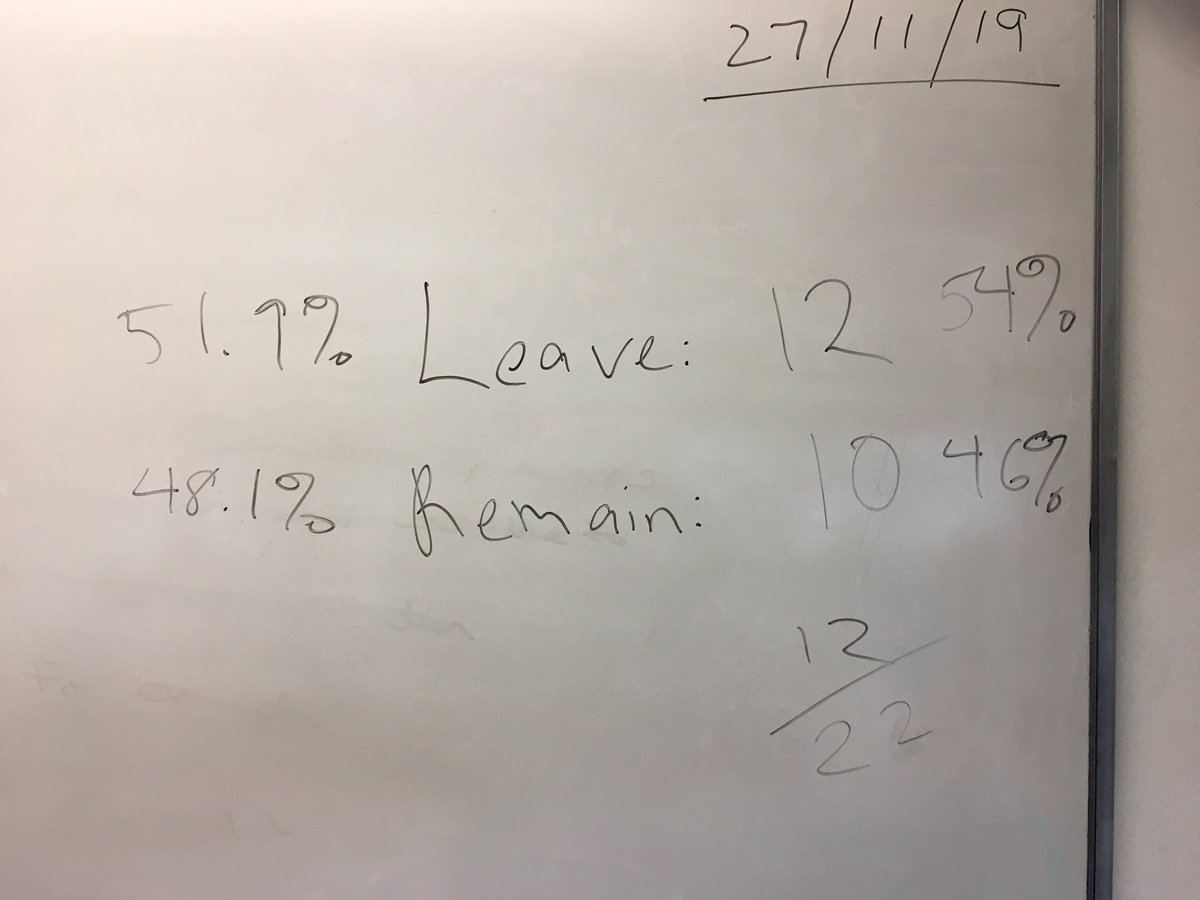 27/11/19
51.9% Leave: 12 54%
48.1% Remain: 10 46%
12/22